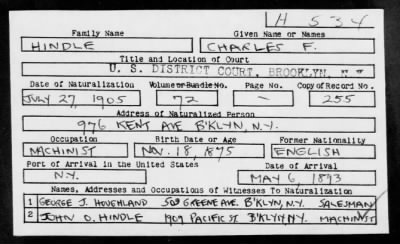 H 534
Family Name Given Name or Names
HINDLE CHARLES F.
Title and Location of Court
U. S. DISTRICT COURT, BROOKLYN, N Y
Date of Naturalization Volume or Bundle No. Page No. Copy of Record No.
JULY 27, 1905 72 - 255
Address of Naturalized Person
976 KENT AVE B'KLYN, N.Y.
Occupation Birth Date or Age Former Nationality
MACHINIST NOV. 18, 1875 ENGLISH
Port of Arrival in the United States Date of Arrival
N.Y. MAY 6, 1893
Names, Addresses and Occupations of Witnesses To Naturalization
1 GEORGE J. HOUGHLAND 503 GREENE AVE. B'KLYN, N.Y. SALESMAN
2 JOHN O. HINDLE 1907 PACIFIC ST B'KLYN N.Y. MACHINIST